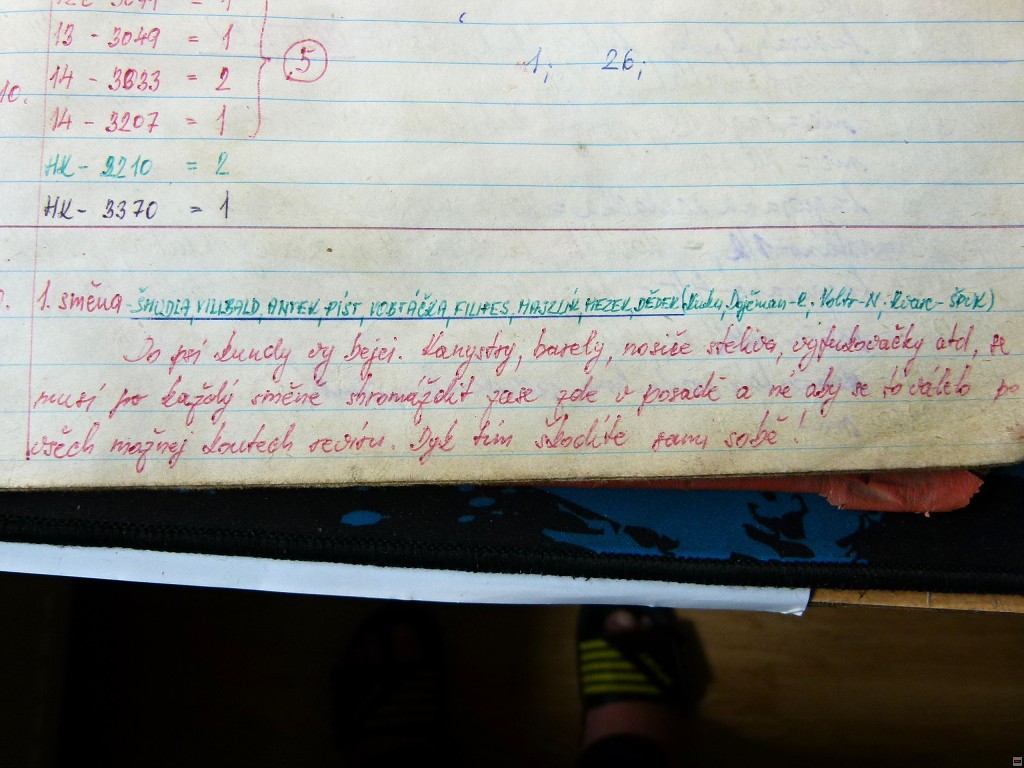 13 - 3049 = 1
14 - 3033 = 2
10.
14 - 3207 = 1
5
1; 26;
HK - 2210 = 2
HK - 3370 = 1
1. směna - ŠMUDLA, VILLBALD, ANTEK, PÍST, VOBTÁČKA, FILIPES, MAJKLÍK, HEZEK, DĚDEK
Do psí kundy vy bejci. Kanystry, barely, nosiče steliva, vyfukovačky atd, se
musí po každý směně shromáždit zase zde v posadě a né aby se to válelo po
všech možnej koutech revíru. Dyk tím škodíte sami sobě!